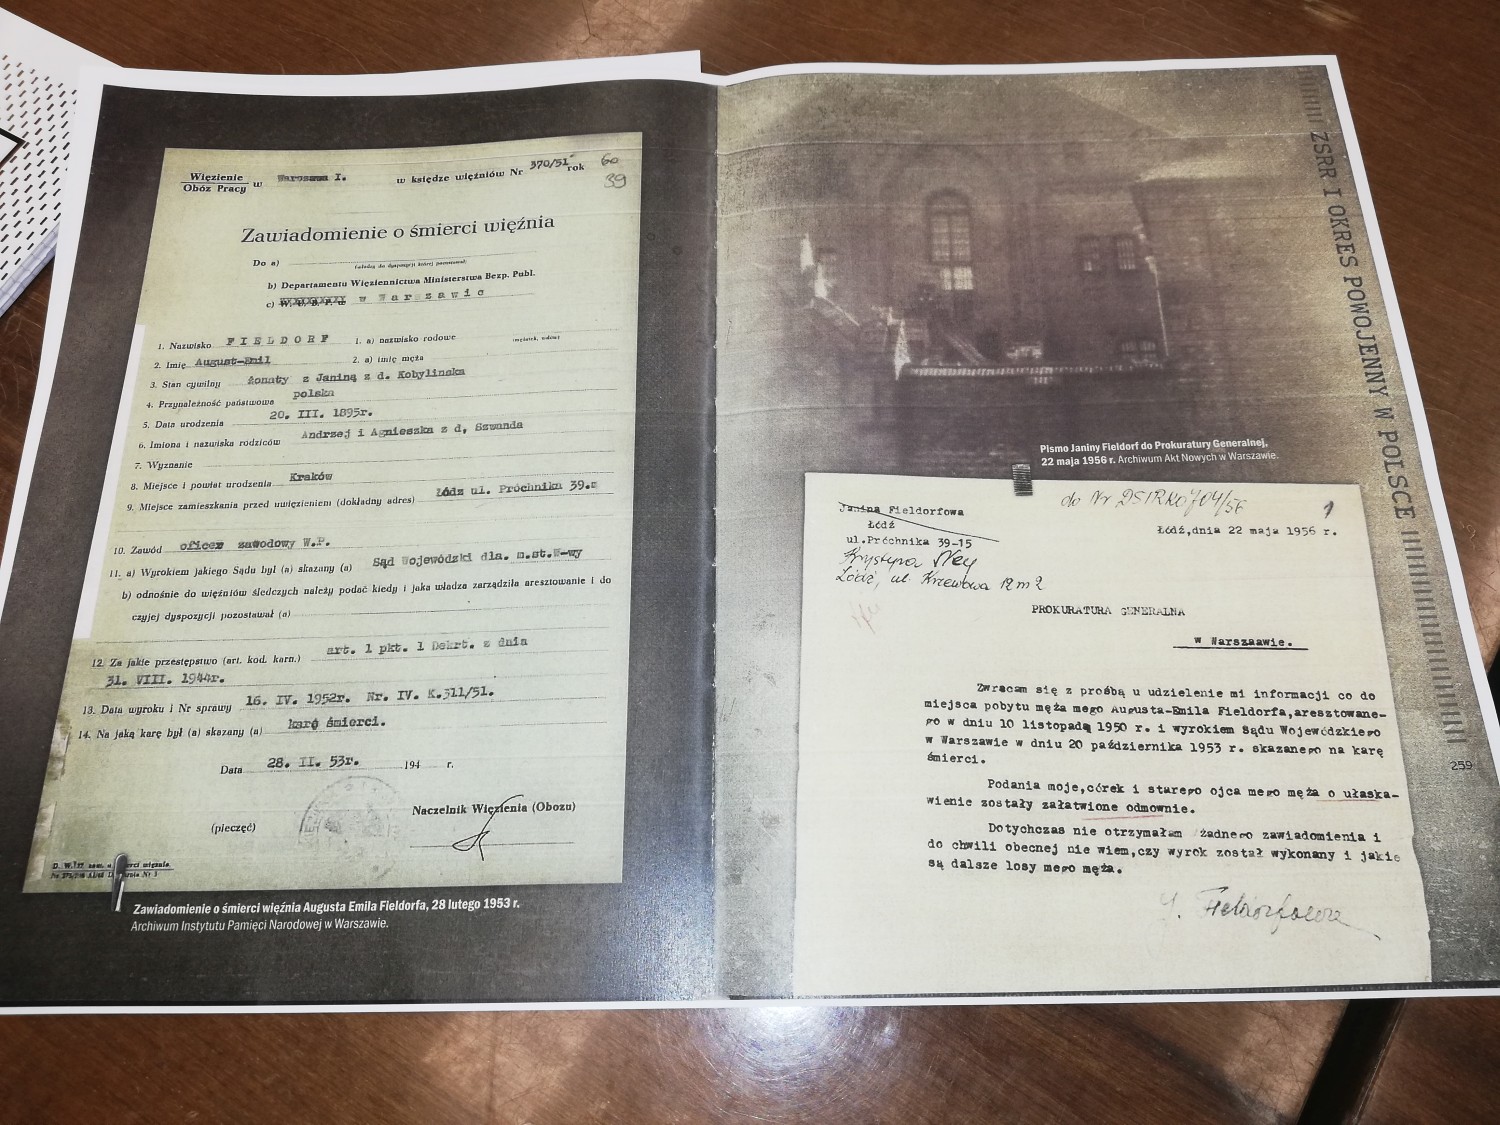 Więzienie
Obóz Pracy w Warszawa I. w księdze więźniów Nr 370/51 rok
60
39
Zawiadomienie o śmierci więźnia
Do a)
(władzy do dyspozycji której pozostawał)
b) Departamentu Więziennictwa Ministerstwa Bezp. Publ.
c) W. U. B. P. w w Warszawie
1. Nazwisko FIELDORF 1. a) nazwisko rodowe
2. Imię August-Emil 2. a) imię męża
3. Stan cywilny żonaty z Janiną z d. Kobylinska
4. Przynależność państwowa polska
5. Data urodzenia 20. III. 1895r.
6. Imiona i nazwiska rodziców Andrzej i Agnieszka z d, Szwanda
7. Wyznanie
8. Miejsce i powiat urodzenia Kraków
9. Miejsce zamieszkania przed uwięzieniem (dokładny adres) Łódz ul. Próchnika 39.m
10. Zawód oficer zawodowy W.P.
11. a) Wyrokiem jakiego Sądu był (a) skazany (a) Sąd Wojewódzki dla. m.st.W-wy
b) odnośnie do więźniów śledczych należy podać kiedy i jaka władza zarządziła aresztowanie i do
czyjej dyspozycji pozostawał (a)
12. Za jakie przestępstwo (art. kod. karn.) art. 1 pkt. 1 Dekrt. z dnia
31. VIII. 1944r.
13. Data wyroku i Nr sprawy 16. IV. 1952r. Nr. IV. K.311/51.
14. Na jaką karę był (a) skazany (a) karę śmierci.
Data 28. II. 53r. 194 r.
Naczelnik Więzienia (Obozu)
(pieczęć)
Zawiadomienie o śmierci więźnia Augusta Emila Fieldorfa, 28 lutego 1953 r.
Archiwum Instytutu Pamięci Narodowej w Warszawie.
ZSRR I OKRES POWOJENNY W POLSCE
259
Pismo Janiny Fieldorf do Prokuratury Generalnej,
22 maja 1956 r. Archiwum Akt Nowych w Warszawie.
do Nr DSIRKo 704/56
1
Janina Fieldorfowa
Łódź
ul.Próchnika 39-15
Łódź,dnia 22 maja 1956 r.
Krystyna
Łódź, ul. Krzewowa 12 m 2
PROKURATURA GENERALNA
w Warszaawie.
Zwracam się z prośbą u udzielenie mi informacji co do
miejsca pobytu męża mego Augusta-Emila Fieldorfa,aresztowane-
go w dniu 10 listopada 1950 r. i wyrokiem Sądu Wojewódzkiego
w Warszawie w dniu 20 października 1953 r. skazanego na karę
śmierci.
Podania moje,córek i starego ojca mego męża o ułaska-
wienie zostały załatwione odmownie.
Dotychczas nie otrzymałam żadnego zawiadomienia i
do chwili obecnej nie wiem,czy wyrok został wykonany i jakie
są dalsze losy mego męża.
J. Fieldorfowa